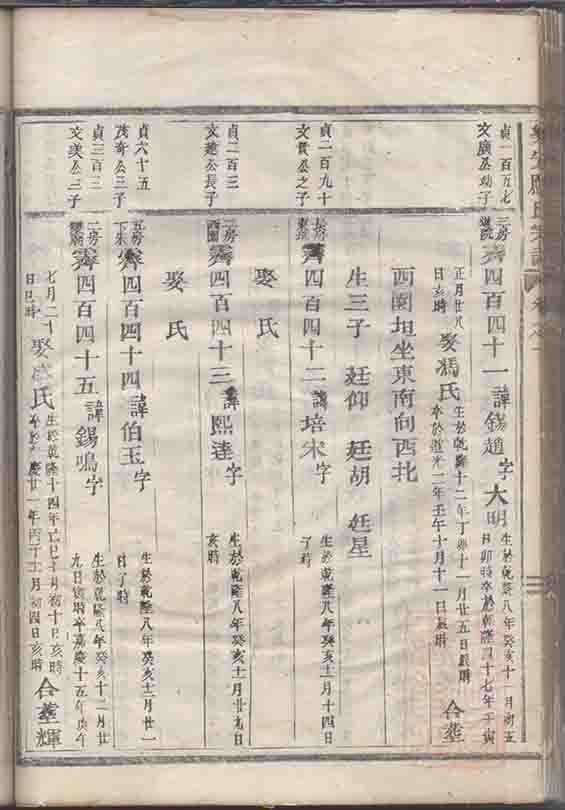 貞一百五七
文廣公幼子
三房
齊四百四十一 諱錢趙 字大明 生於乾隆八年癸亥十一月初五
日卯時卒於乾隆四十七年壬寅
正月廿八
日亥時 娶馮氏 生於乾隆十二年丁卯十一月廿五日辰時
卒於道光二年壬午十月十一日辰時 合塟
西園坦坐東南向西北
生三子 廷仰 廷胡 廷星
貞二百九十
文貫公之子
齊四百四十二 諱培宋 字 生於乾隆八年癸亥十一月十四日
子時
娶氏
貞二百三
文遶公長子
二房
西園 齊四百四十三 諱熙逵 字 生於乾隆八年癸亥十一月廿九日
亥時
娶氏
貞六十五
茂奇公三子
五房
下朱 齊四百四十四 諱伯玉 字 生於乾隆八年癸亥十二月廿一
日子時
貞三百三
文美公三子
二房
齊四百四十五 諱錫鳴 字 生於乾隆八年癸亥十二月廿
九日寅時卒嘉慶十五年庚午
七月二
日巳時 娶 氏 生於乾隆十四年己巳十月初十日亥時
卒於 慶廿一年丙子 月初四日亥時 合塟輝